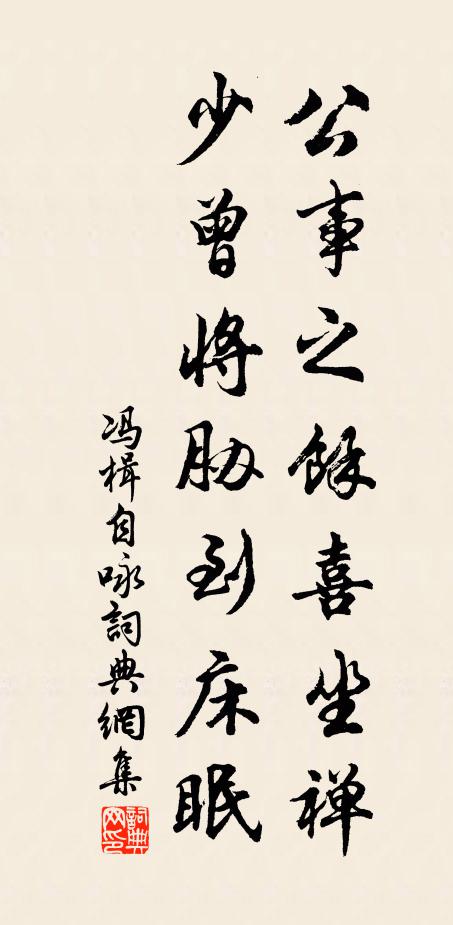 公事之餘喜坐禅
少曾將胁到床眠
冯楫自咏詞典網集
詞典网印